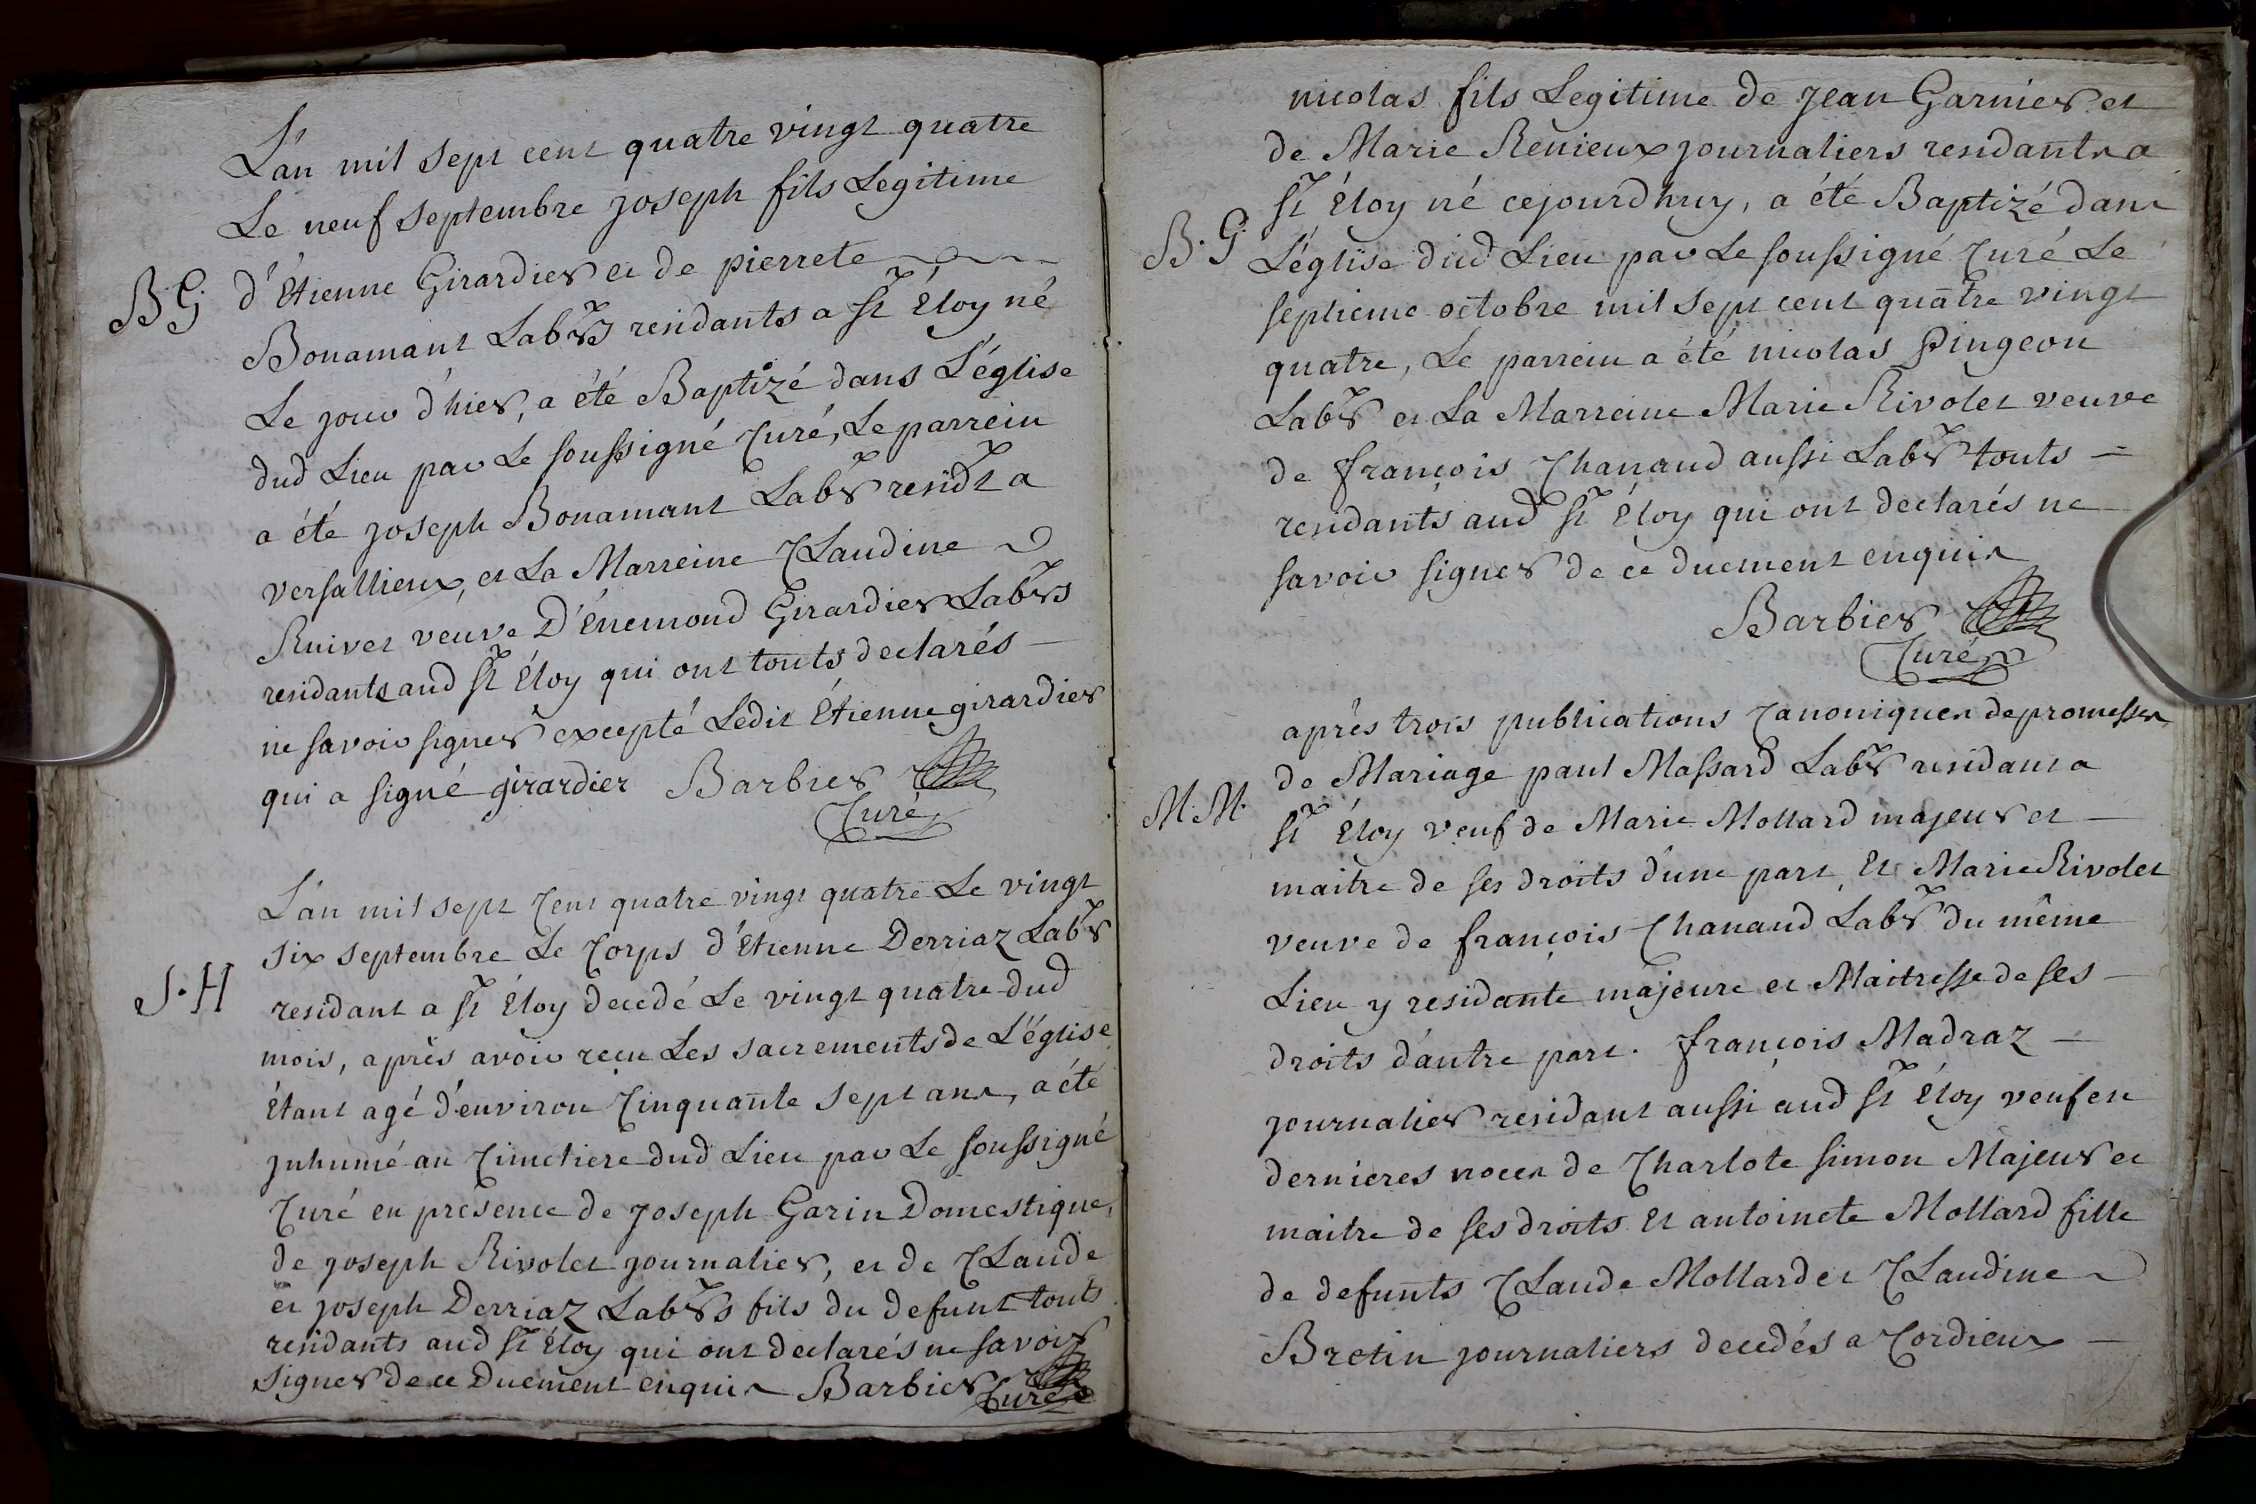 L'an mil sept cent quatre vingt quatre
Le neuf septembre joseph fils Legitime
B G d'Étienne Girardier et de pierrete
Bonamant Labrs residants a St Éloy né
Le jour d'hier, a été Baptizé dans L'église
dud Lieu par Le soussigné Curé, Le parrein
a été joseph Bonamant Labr residt a
versallieux, et La Marreine Claudine
Ruivet veuve D'Énemond Girardier Labrs
residants aud St Éloy qui ont touts declarés
ne savoir signer excepté Ledit Étienne girardier
qui a signé girardier Barbier
Curé
L'an mil sept Cent quatre vingt quatre Le vingt
six septembre Le Corps d'Étienne Derriaz Labr
S. H residant a St Éloy decedé Le vingt quatre dud
mois, après avoir recu Les sacrements de L'église
Étant agé d'environ Cinquante sept ans, a été
inhumé au Cimetiere dud Lieu par Le soussigné
Curé en présence de Joseph Garin Domestique,
de joseph Rivolet journalier, et de Claude
et joseph Derriaz Labrs fils du defunt touts
residants aud St Éloy qui ont declarés ne savoir
signer de ce Duement enquis Barbier Curé
nicolas fils Legitime de jean Garnier et
de Marie Renieux journaliers residants a
St Éloy né cejourd'huy, a été Baptizé dans
B. G. L'église dud Lieu par Le soussigné Curé Le
septieme octobre mil sept cent quatre vingt
quatre, Le parrein a été nicolas Pingeon
Labr et La Marreine Marie Rivolet veuve
de françois Chanaud aussi Labr touts
residants aud St Éloy qui ont declarés ne
savoir signer de ce duement enquis
Barbier
Curé
après trois publications Canoniques de promesses
de Mariage paul Massard Labr residant a
M. M. St Éloy veuf de Marie Mollard majeur et
maitre de ses droits d'une part, Et Marie Rivolet
veuve de françois Chanaud Labr du même
Lieu y residante majeure et Maitresse de ses
droits d'autre part. françois Madraz
journalier residant aussi aud St Éloy veuf en
dernieres noces de Charlote simon Majeur et
maitre de ses droits Et antoinete Mollard fille
de defunts Claude Mollard et Claudine
Bretin journaliers decedés a Cordieux